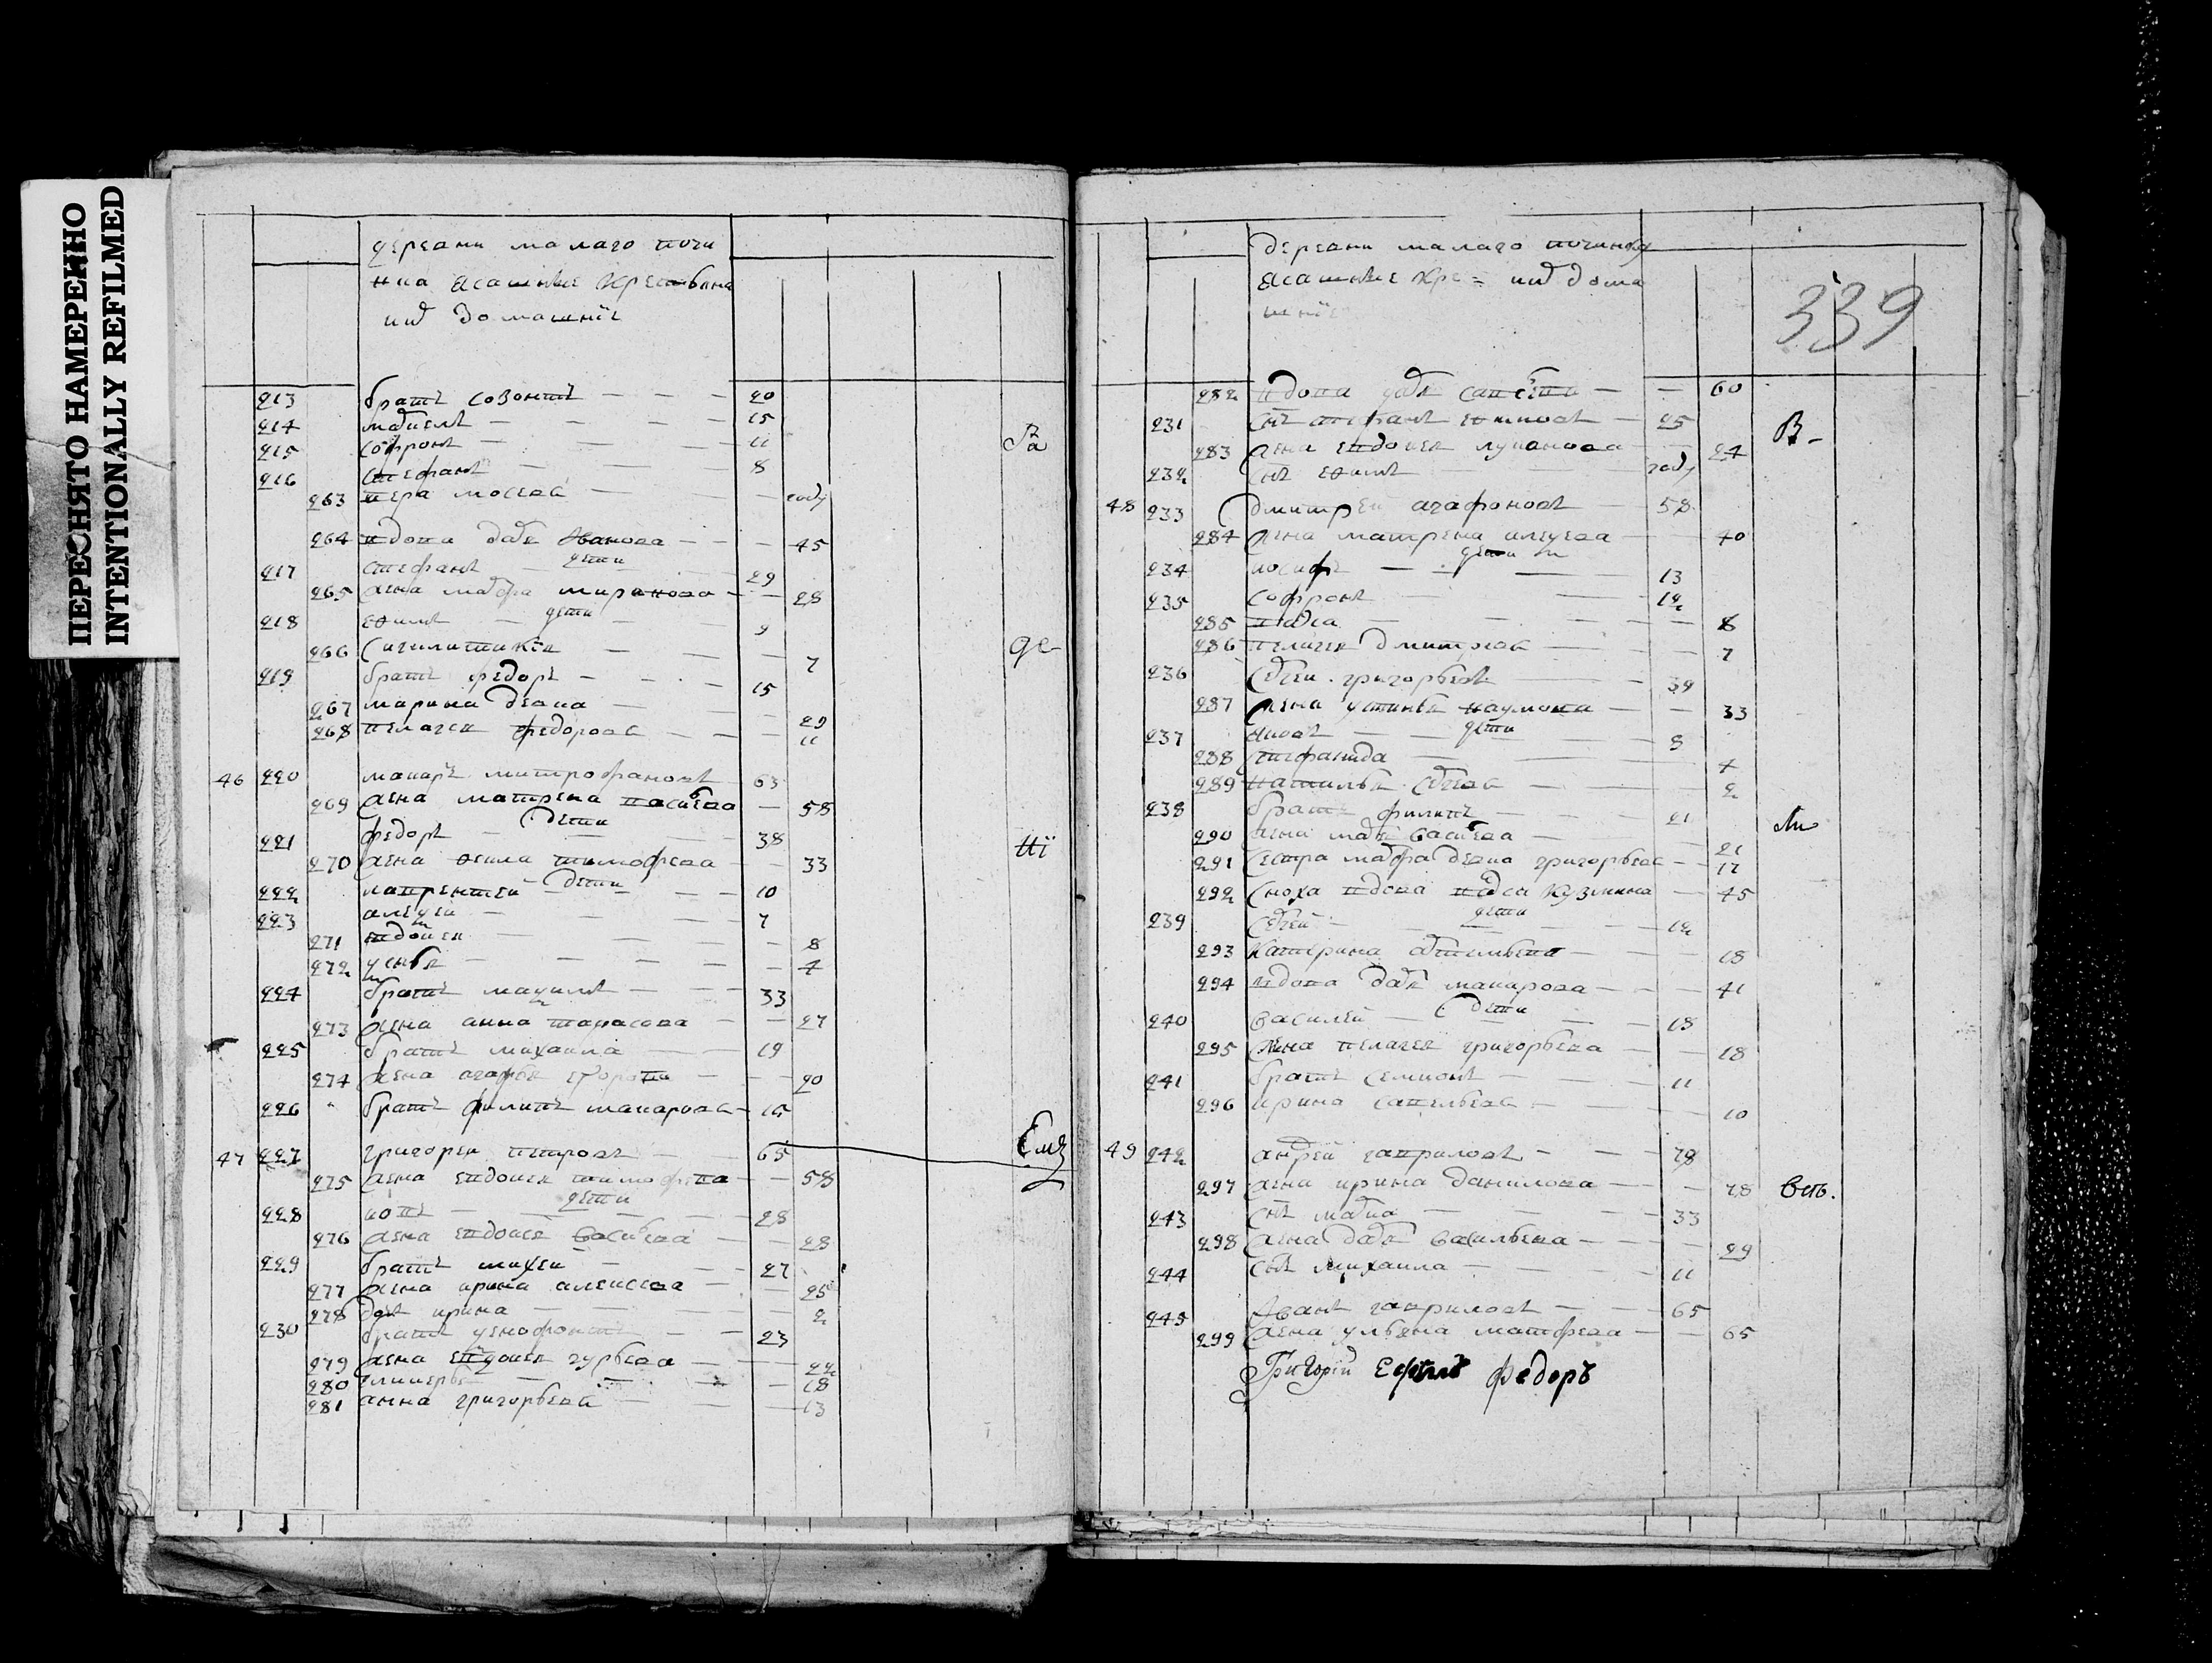 ПЕРЕСНЯТО НАМЕРЕННО
INTENTIONALLY REFILMED
деревни малаго почи
нка ясашные крестьяна
ихъ домашнїе
213 братъ созонтъ 20
214 15
215 софронъ 11
216 стефанъ 8
263 году
264 вдова дарья иванова 45
дети
217 стефанъ 29
265 жена марфа миронова 28
дети
218 ефимъ 9
266 7
219 братъ федоръ 15
267 марина девка 29
268 пелагея федорова 11
46 220 макаръ митрофановъ 63
269 жена матрена васильева 58
дети
221 федоръ 38
270 жена фекла тимофеева 33
дети
222 лаврентей 10
223 алексей 7
271 евдокея 8
272 4
224 братъ максимъ 33
273 жена анна тарасова 27
225 братъ михаила 19
274 жена агафья егорова 20
226 братъ филипъ макаровъ 15
47 227 григореи петровъ 65
275 жена евдокея тимофеева 58
дети
228 28
276 жена евдокея васильева 28
229 братъ михеи 27
277 жена ирина алексеева 25
278 дочь ирина 2
230 братъ ксенофонтъ 23
279 жена евдокея гурьева 22
280 гликерья 18
281 анна григорьева 13
де
деревни малаго починку
ясашные кре= ихъ дома
шнїе
339
282 вдова дарья савельева 60
231 сынъ стефанъ 25
283 жена евдокея лукоянова 24
232 сынъ ефимъ году
48 233 дмитреи агафоновъ 58
284 жена матрена алексеева 40
дети
234 иосифъ 13
235 софронъ 12
285 8
286 пелагея дмитрева 7
236 сергеи григорьевъ 39
287 жена устинья наумова 33
дети
237 яковъ 8
288 епифанида 4
289 наталья сергеева 2
238 братъ филипъ 21
290 жена марья васильева 21
291 сестра марфа девка григорьева 17
292 сноха вдова кузмина 45
дети
239 сергей 12
293 катерина 18
294 вдова дарья макарова 41
дети
240 василеи 18
295 жена пелагея григорьева 18
241 братъ семионъ 11
296 ирина савельева 10
49 242 андреи гавриловъ 78
297 жена ирина данилова 78
243 сынъ марка 33
298 жена дарья васильева 29
244 сынъ михаила 11
245 иванъ гавриловъ 65
299 жена ульяна матфеева 65
Григорїи Ефимъ федоръ